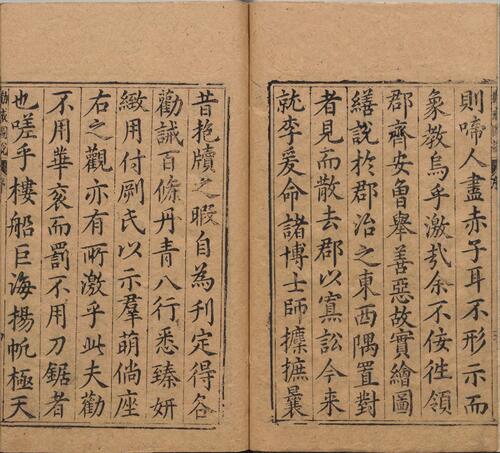 則啼人盡赤子耳不形示而
象教烏乎激㢤余不佞徃領
郡齊安魯舉善惡故實繪圖
繕說於郡冶之東西隅置對
者見而散去郡以寡訟今來
就李爰命諸博士師攗摭曩
昔牘之暇自為刊定得各
勸誡百條丹青八行悉臻妍
緻用付劂氏以示羣萌倘座
右之觀亦有所激乎此夫勸
不用華衮而罰不用刀鋸者
也嗟乎樓船巨海揚帆極天